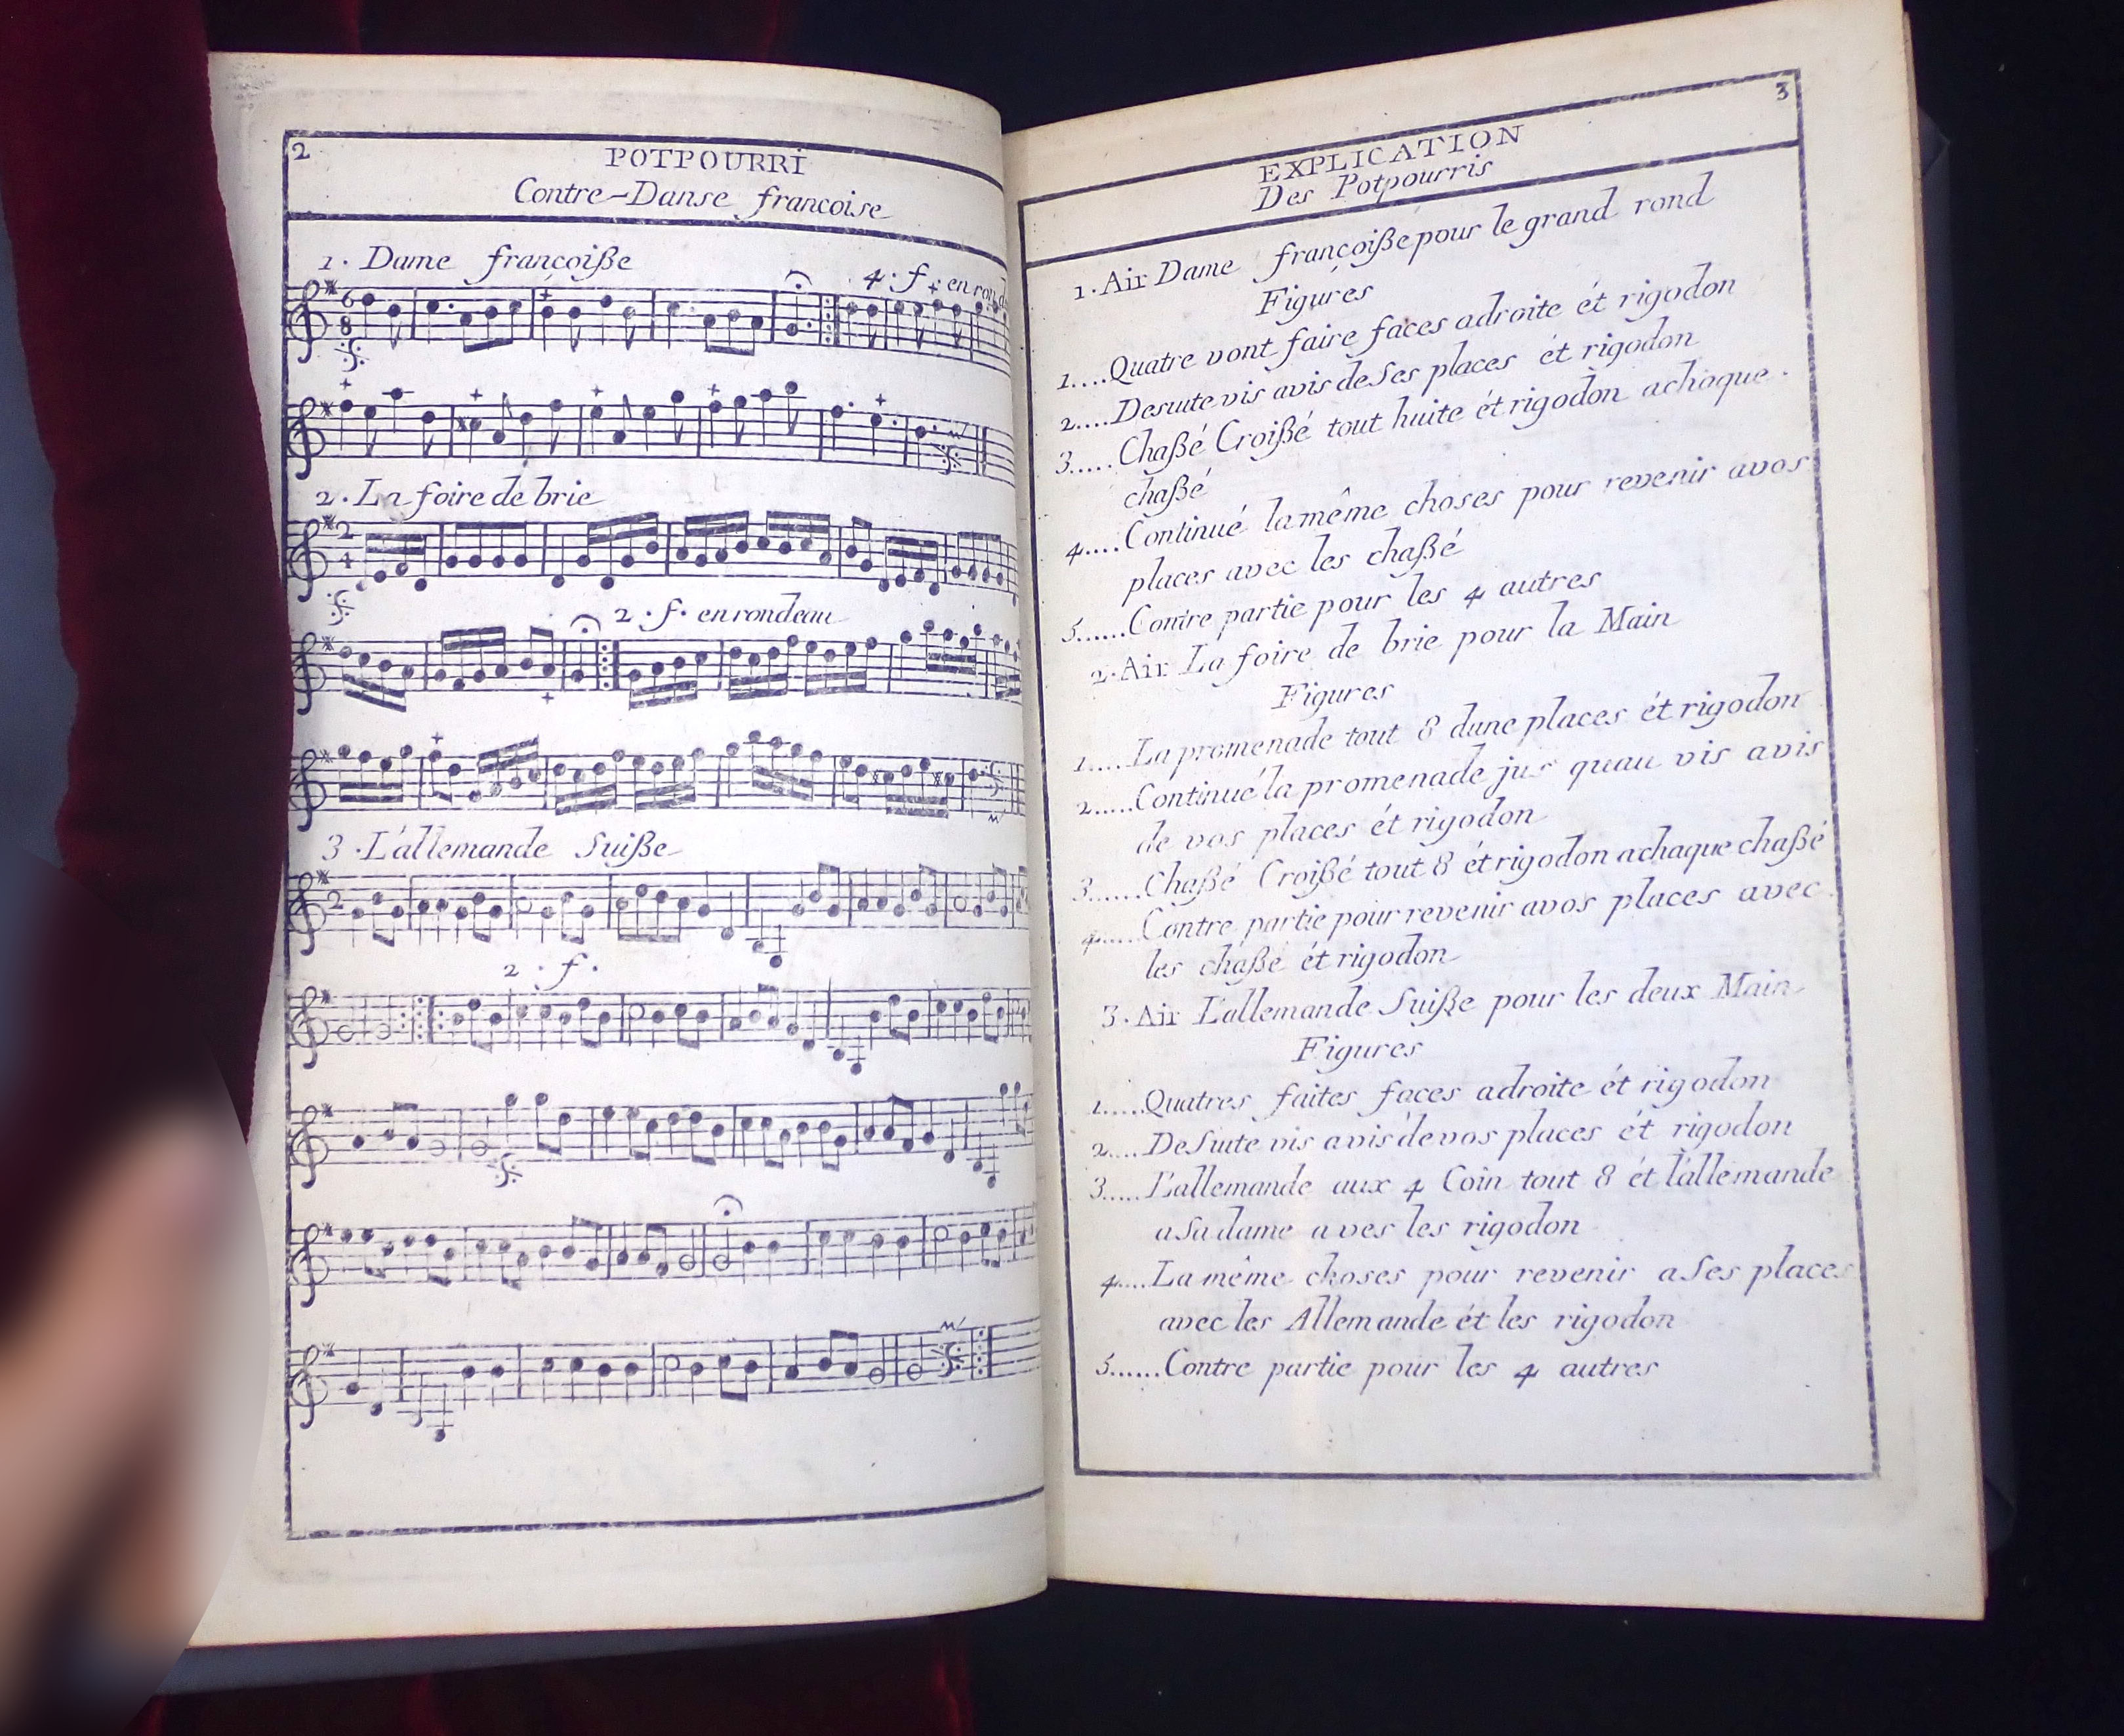 2
POTPOURRI
Contre-Danse francoise
1. Dame françoiße
4. f. en rond
2. La foire de brie
2. f. en rondeau
3. L'allemande Suiße
2. f.
3
EXPLICATION
Des Potpourris
1. Air Dame françoiße pour le grand rond
Figures
1....Quatre vont faire faces adroite ét rigodon
2....Desuite vis avis de Ses places ét rigodon
3.....Chaßé Croißé tout huite ét rigodon achaque.
chaßé
4....Continué la même choses pour revenir avos
places avec les chaßé
5......Contre partie pour les 4 autres
2. Air La foire de brie pour la Main
Figures
1.....La promenade tout 8 dune places ét rigodon
2.....Continué la promenade jus quau vis avis
de vos places ét rigodon
3......Chaßé Croißé tout 8 ét rigodon achaque chaßé
4.....Contre partie pour revenir avos places avec
les chaßé ét rigodon
3. Air L'allemande Suiße pour les deux Main
Figures
1.....Quatres faites faces adroite ét rigodon
2....De Suite vis avis de vos places ét rigodon
3.....L'allemande aux 4 Coin tout 8 ét l'allemande
a Sa dame aves les rigodon
4....La même choses pour revenir a Ses places
avec les Allemande ét les rigodon
5......Contre partie pour les 4 autres